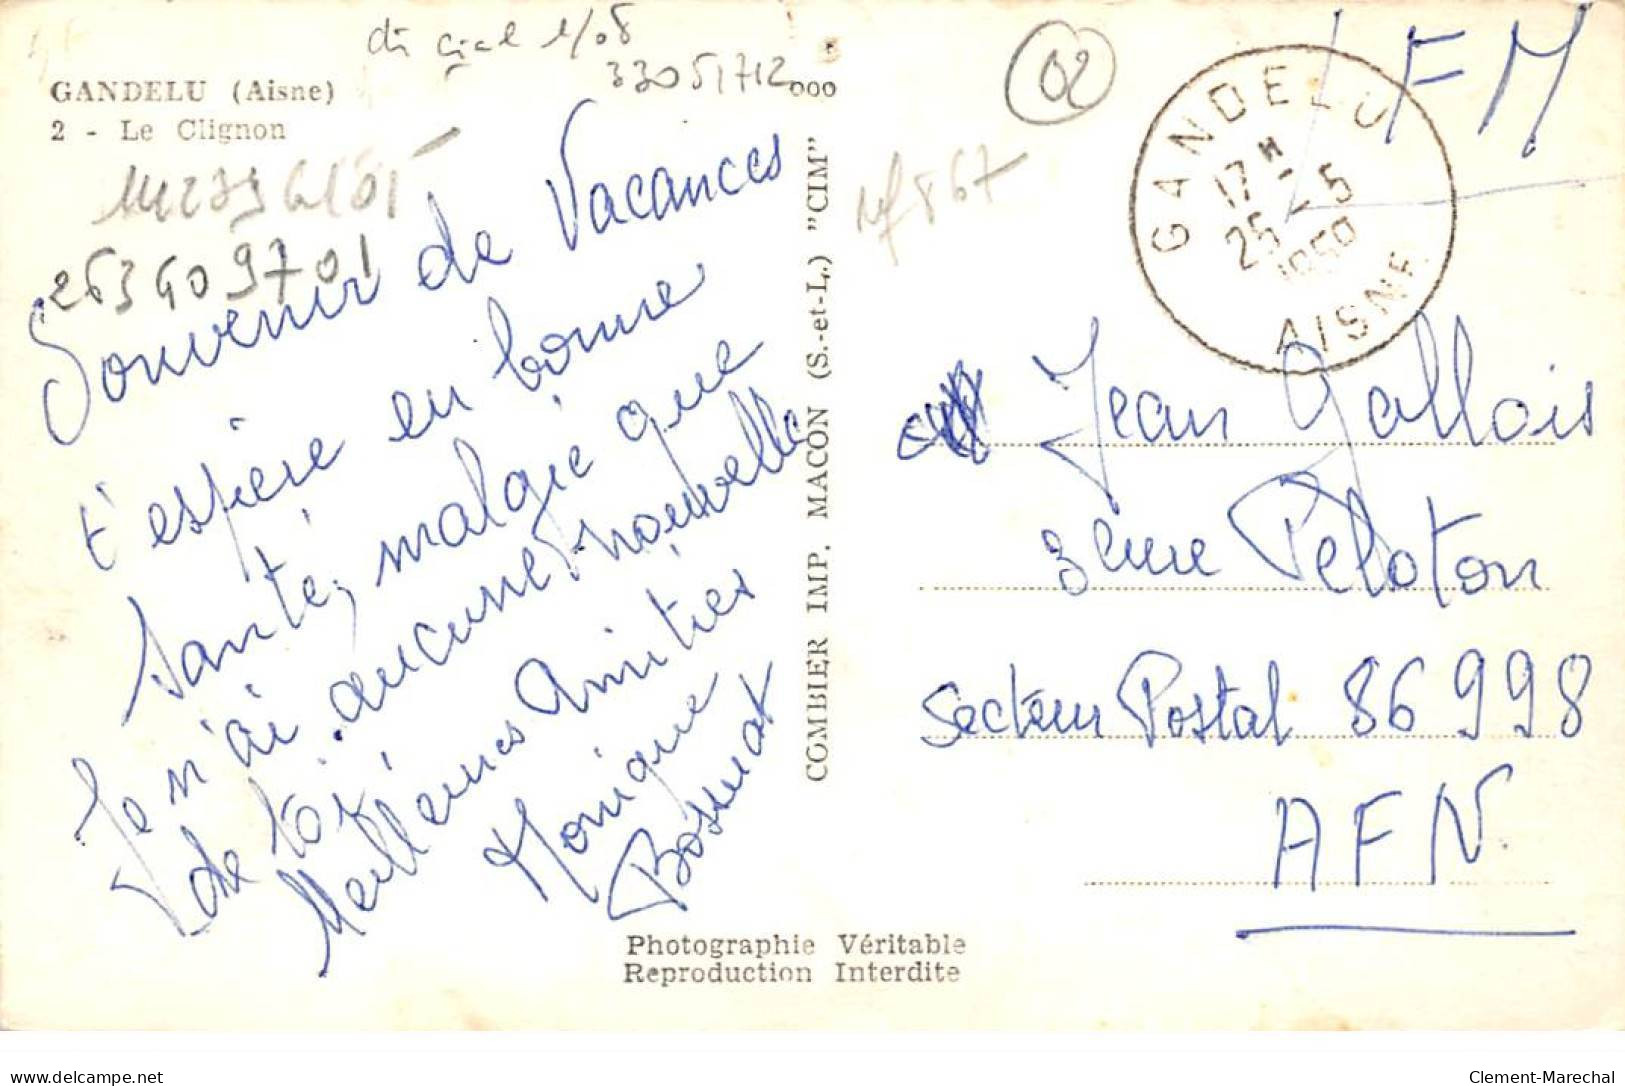 33051712
ooo
GANDELU (Aisne)
2 - Le Clignon
263409701
Souvenir de Vacances
t'espère en bonne
Santé, malgré que
Je n'ai aucune nouvelle
de toi.
Meilleures Amitiés
Monique
Bossuat
COMBIER IMP. MACON (S.-et-L.) "CIM"
02
ref 867
FM
GANDELU
17 H
25 - 5
AISNE
Jean Gallois
3eme Peloton
Secteur Postal 86998
AFN
Photographie Véritable
Reproduction Interdite
delcampe.net
Clement-Marechal